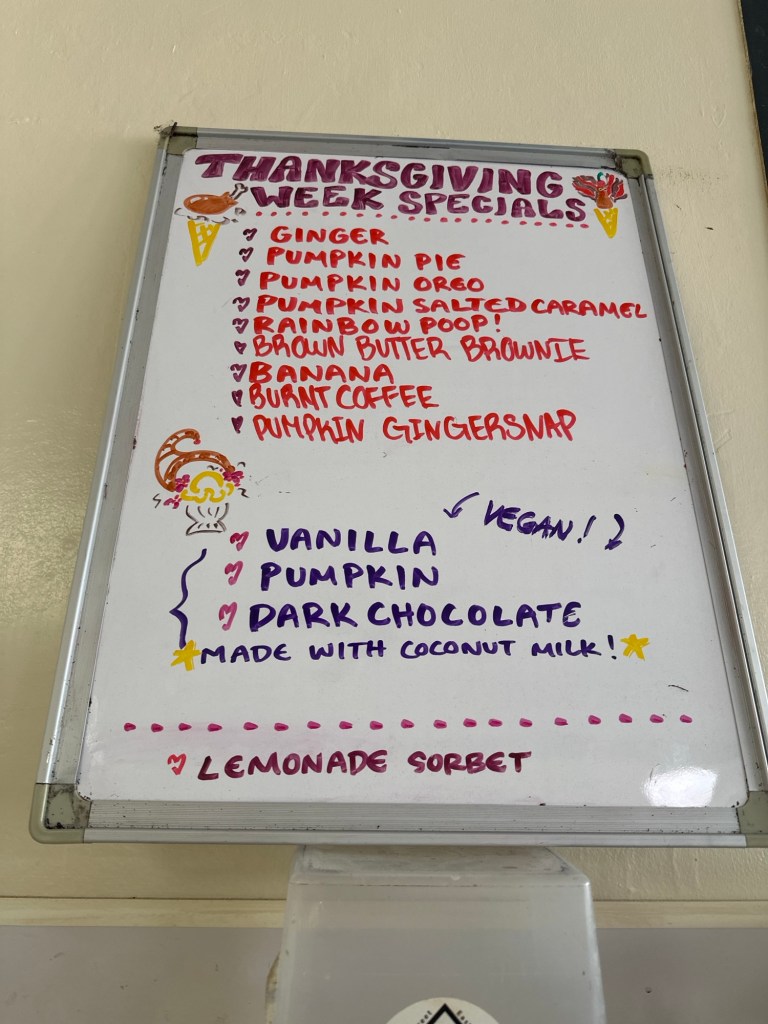 THANKSGIVING
WEEK SPECIALS
GINGER
PUMPKIN PIE
PUMPKIN OREO
PUMPKIN SALTED CARAMEL
RAINBOW POOP!
BROWN BUTTER BROWNIE
BANANA
BURNT COFFEE
PUMPKIN GINGERSNAP
VEGAN!
VANILLA
PUMPKIN
DARK CHOCOLATE
MADE WITH COCONUT MILK!
LEMONADE SORBET